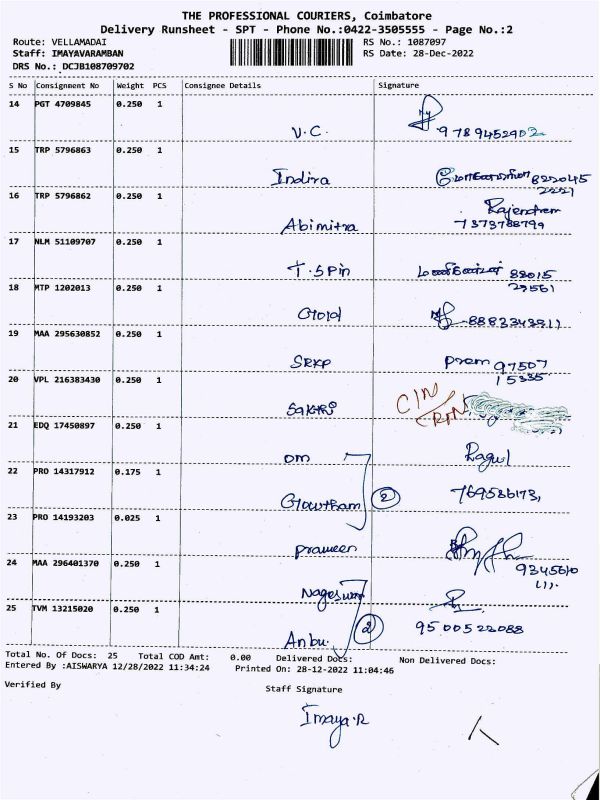 THE PROFESSIONAL COURIERS, Coimbatore
Delivery Runsheet - SPT - Phone No.:0422-3505555 - Page No.:2
Route: VELLAMADAI
RS No.: 1087097
Staff: IMAYAVARAMBAN
RS Date: 28-Dec-2022
DRS No.: DCJB108709702
S No Consignment No Weight PCS Consignee Details Signature
14 PGT 4709845 0.250 1
V.C. 9789452902
15 TRP 5796863 0.250 1
Indira 822045
2221
16 TRP 5796862 0.250 1
Rajendren
Abimitra 7373788799
17 NLM 51109707 0.250 1
T.Spin 88015
29561
18 MTP 1202013 0.250 1
Gold 8883343811
19 MAA 295630852 0.250 1
SRKP Prem 97507
15335
20 VPL 216383430 0.250 1
Sakthi C/N
21 EDQ 17450897 0.250 1
OM Ragul
22 PRO 14317912 0.175 1
Gowtham 2
23 PRO 14193203 0.025 1
Praveen
24 MAA 296401370 0.250 1
Nageswari
25 TVM 13215020 0.250 1
Anbu. 2 9500522088
Total No. Of Docs: 25 Total COD Amt: 0.00 Delivered Docs: Non Delivered Docs:
Entered By :AISWARYA 12/28/2022 11:34:24 Printed On: 28-12-2022 11:04:46
Verified By Staff Signature
Imaya.R